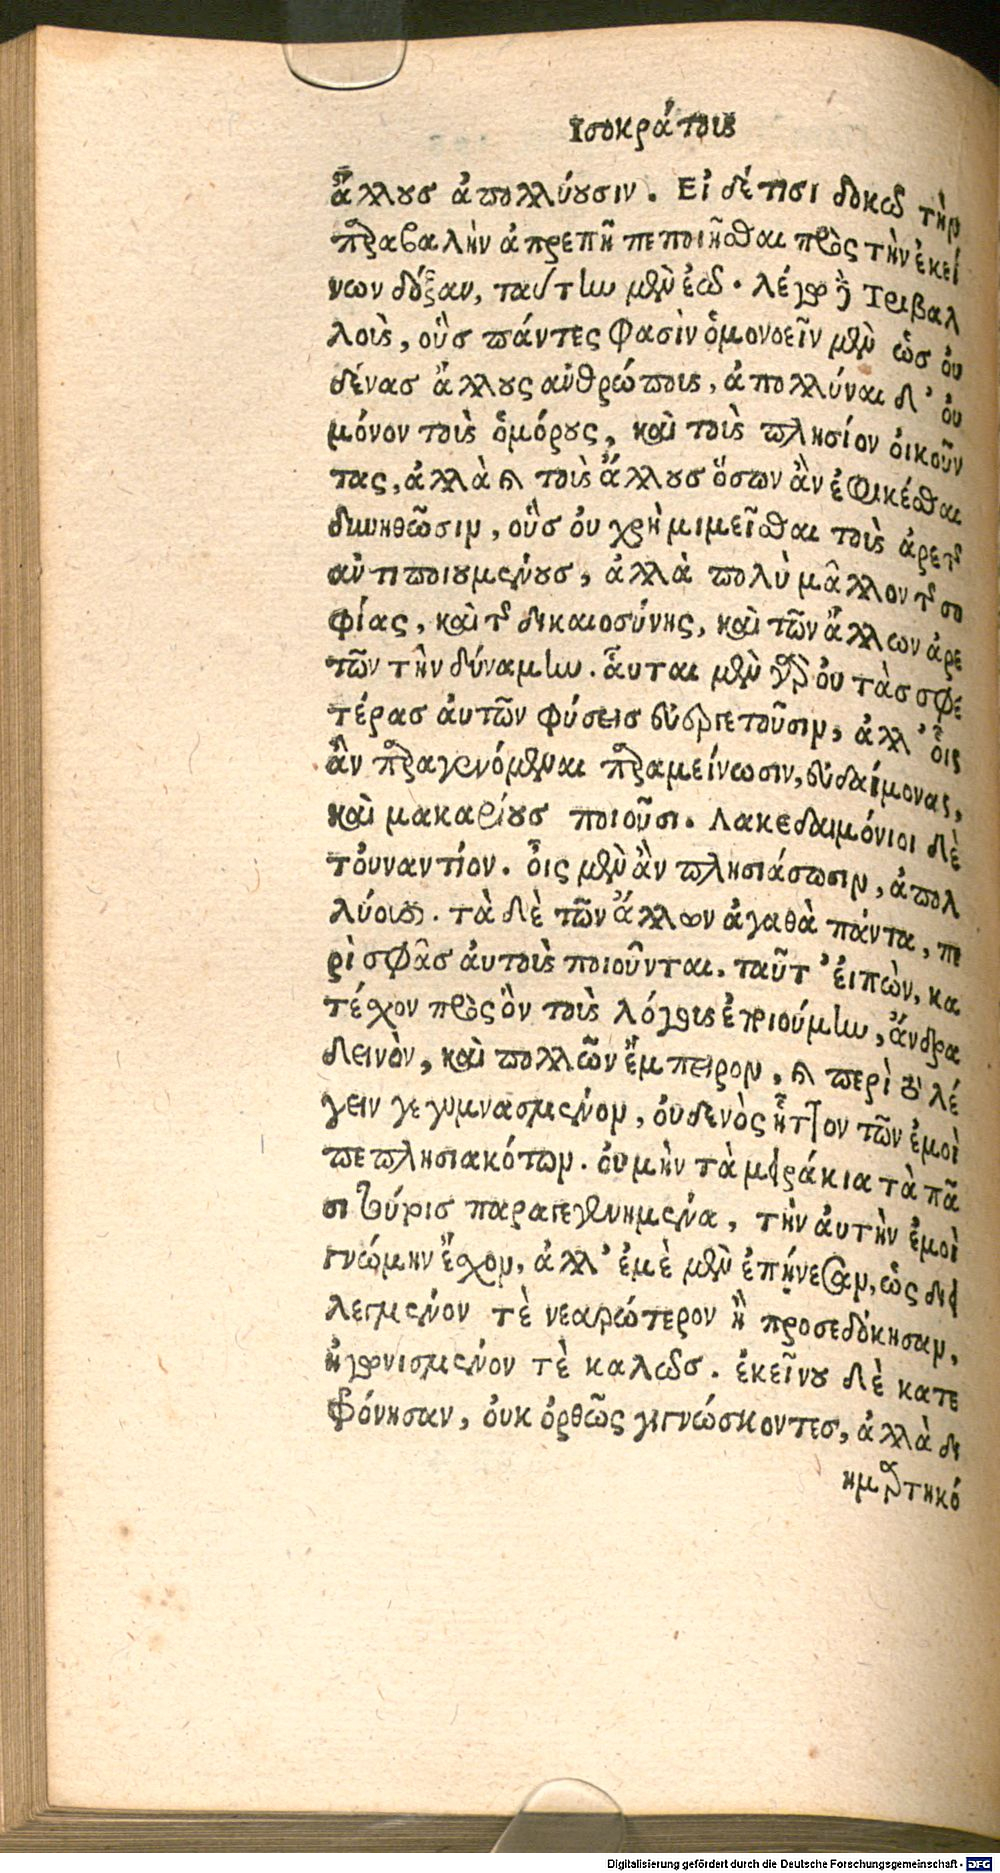 Ισοκράτους
ἄλλους ἀπολλύουσιν. Εἰ δέ τισι δοκῶ τὴν
παραβαλὴν ἀπρεπῆ πεποιῆσθαι πρὸς τὴν ἐκεί
νων δόξαν, ταύτην μὲν ἐῶ. λέγω δὲ Τριβαλ
λοὺς, οὓς πάντες φασὶν ὁμονοεῖν μὲν ὡς οὐ
δένας ἄλλους ἀνθρώπους, ἀπολλύναι δ' οὐ
μόνον τοὺς ὁμόρους, καὶ τοὺς πλησίον οἰκοῦν
τας, ἀλλὰ καὶ τοὺς ἄλλους ὅσων ἂν ἐφικέσθαι
δυνηθῶσιν, οὓς οὐ χρὴ μιμεῖσθαι τοὺς ἀρετῆς
ἀντιποιουμένους, ἀλλὰ πολὺ μᾶλλον τῆς σο
φίας, καὶ τῆς δικαιοσύνης, καὶ τῶν ἄλλων ἀρε
τῶν τὴν δύναμιν. αὗται μὲν γὰρ οὐ τὰς σφε
τέρας αὐτῶν φύσεις εὐεργετοῦσιν, ἀλλ' οἷς
ἂν παραγενόμεναι παραμείνωσιν, εὐδαίμονας,
καὶ μακαρίους ποιοῦσι. Λακεδαιμόνιοι δὲ
τοὐναντίον. οἷς μὲν ἂν πλησιάσωσιν, ἀπολ
λύουσι. τὰ δὲ τῶν ἄλλων ἀγαθὰ πάντα, πε
ρὶ σφᾶς αὐτοὺς ποιοῦνται. ταῦτ' εἰπὼν, κα
τέχον πρὸς ὃν τοὺς λόγους ἐποιούμην, ἄνδρα
δεινὸν, καὶ πολλῶν ἔμπειρον, καὶ περὶ τοῦ λέ
γειν γεγυμνασμένον, οὐδενὸς ἧττον τῶν ἐμοὶ
πεπλησιακότων. οὐ μὴν τὰ μειράκια τὰ πᾶ
σι τούτοις παραγεγενημένα, τὴν αὐτὴν ἐμοὶ
γνώμην ἔχον, ἀλλ' ἐμὲ μὲν ἐπῄνεσαν, ὡς διει
λεγμένον τὲ νεαρώτερον ἢ προσεδόκησαν,
ἠγωνισμένον τὲ καλῶς. ἐκείνου δὲ κατε
φρόνησαν, οὐκ ὀρθῶς γιγνώσκοντες, ἀλλὰ δι
ημαρτηκό
Digitalisierung gefördert durch die Deutsche Forschungsgemeinschaft - DFG